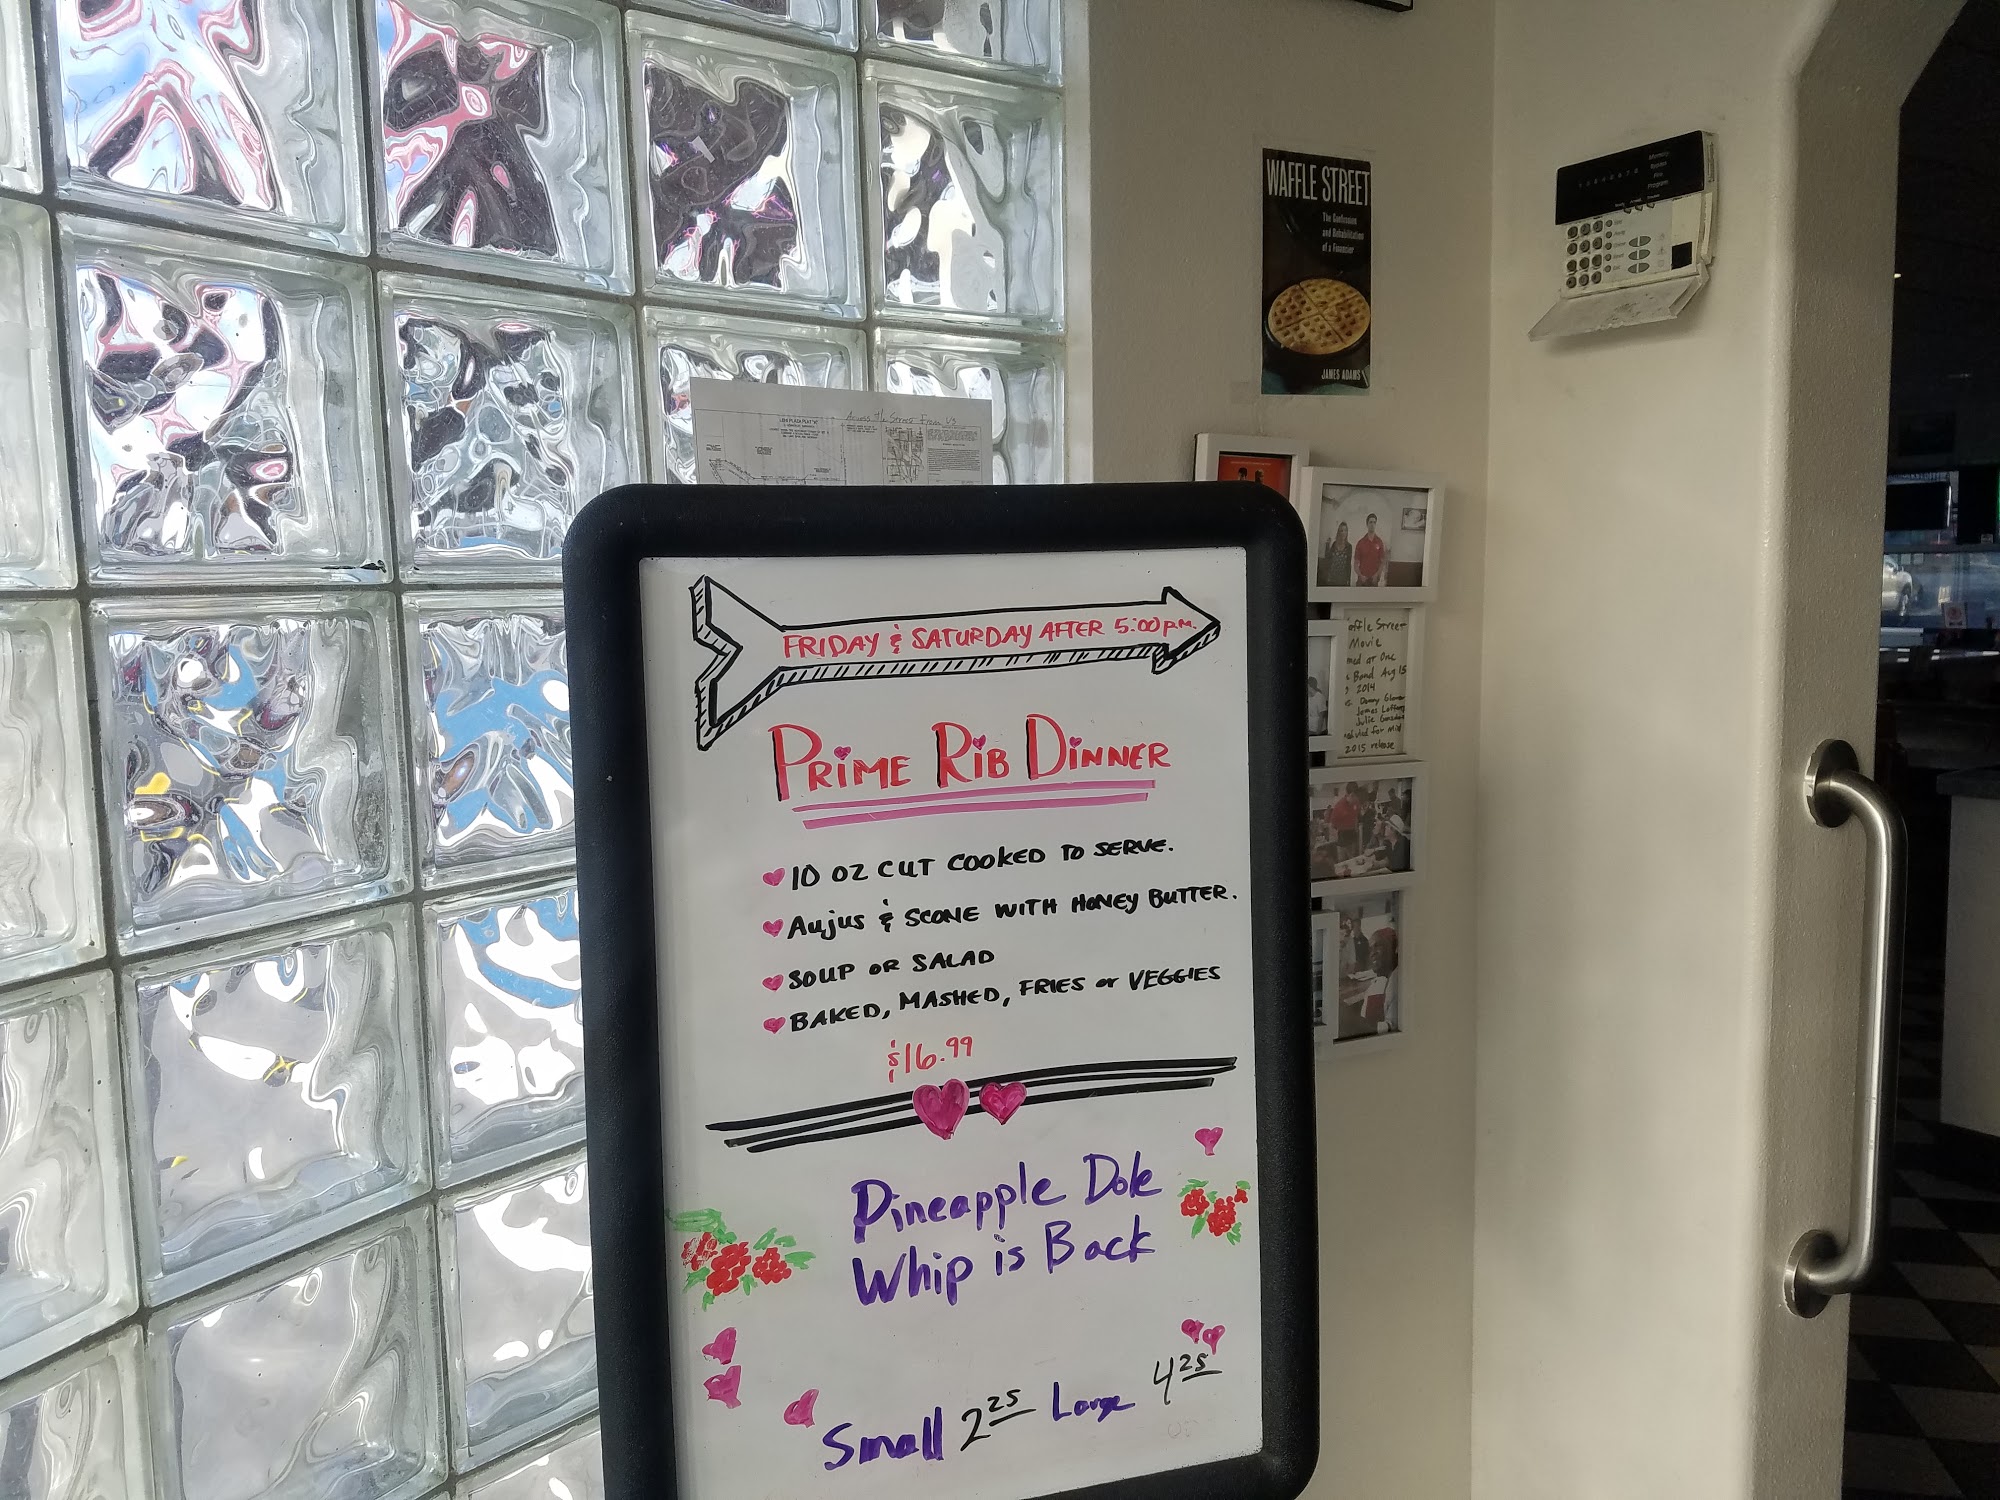 WAFFLE STREET
The Confession
and Rehabilitation
of a Financier
JAMES ADAMS
Across the Street From Us
FRIDAY & SATURDAY AFTER 5:00 P.M.
PRIME RIB DINNER
10 OZ CUT COOKED TO SERVE.
AUJUS & SCONE WITH HONEY BUTTER.
SOUP OR SALAD
BAKED, MASHED, FRIES or VEGGIES
$16.99
Pineapple Dole
Whip is Back
Small 2 25 Large 4 25
affle Street
Movie
med at One
Band Aug 15
2014
Danny
James
Julie
for Mid
2015 release